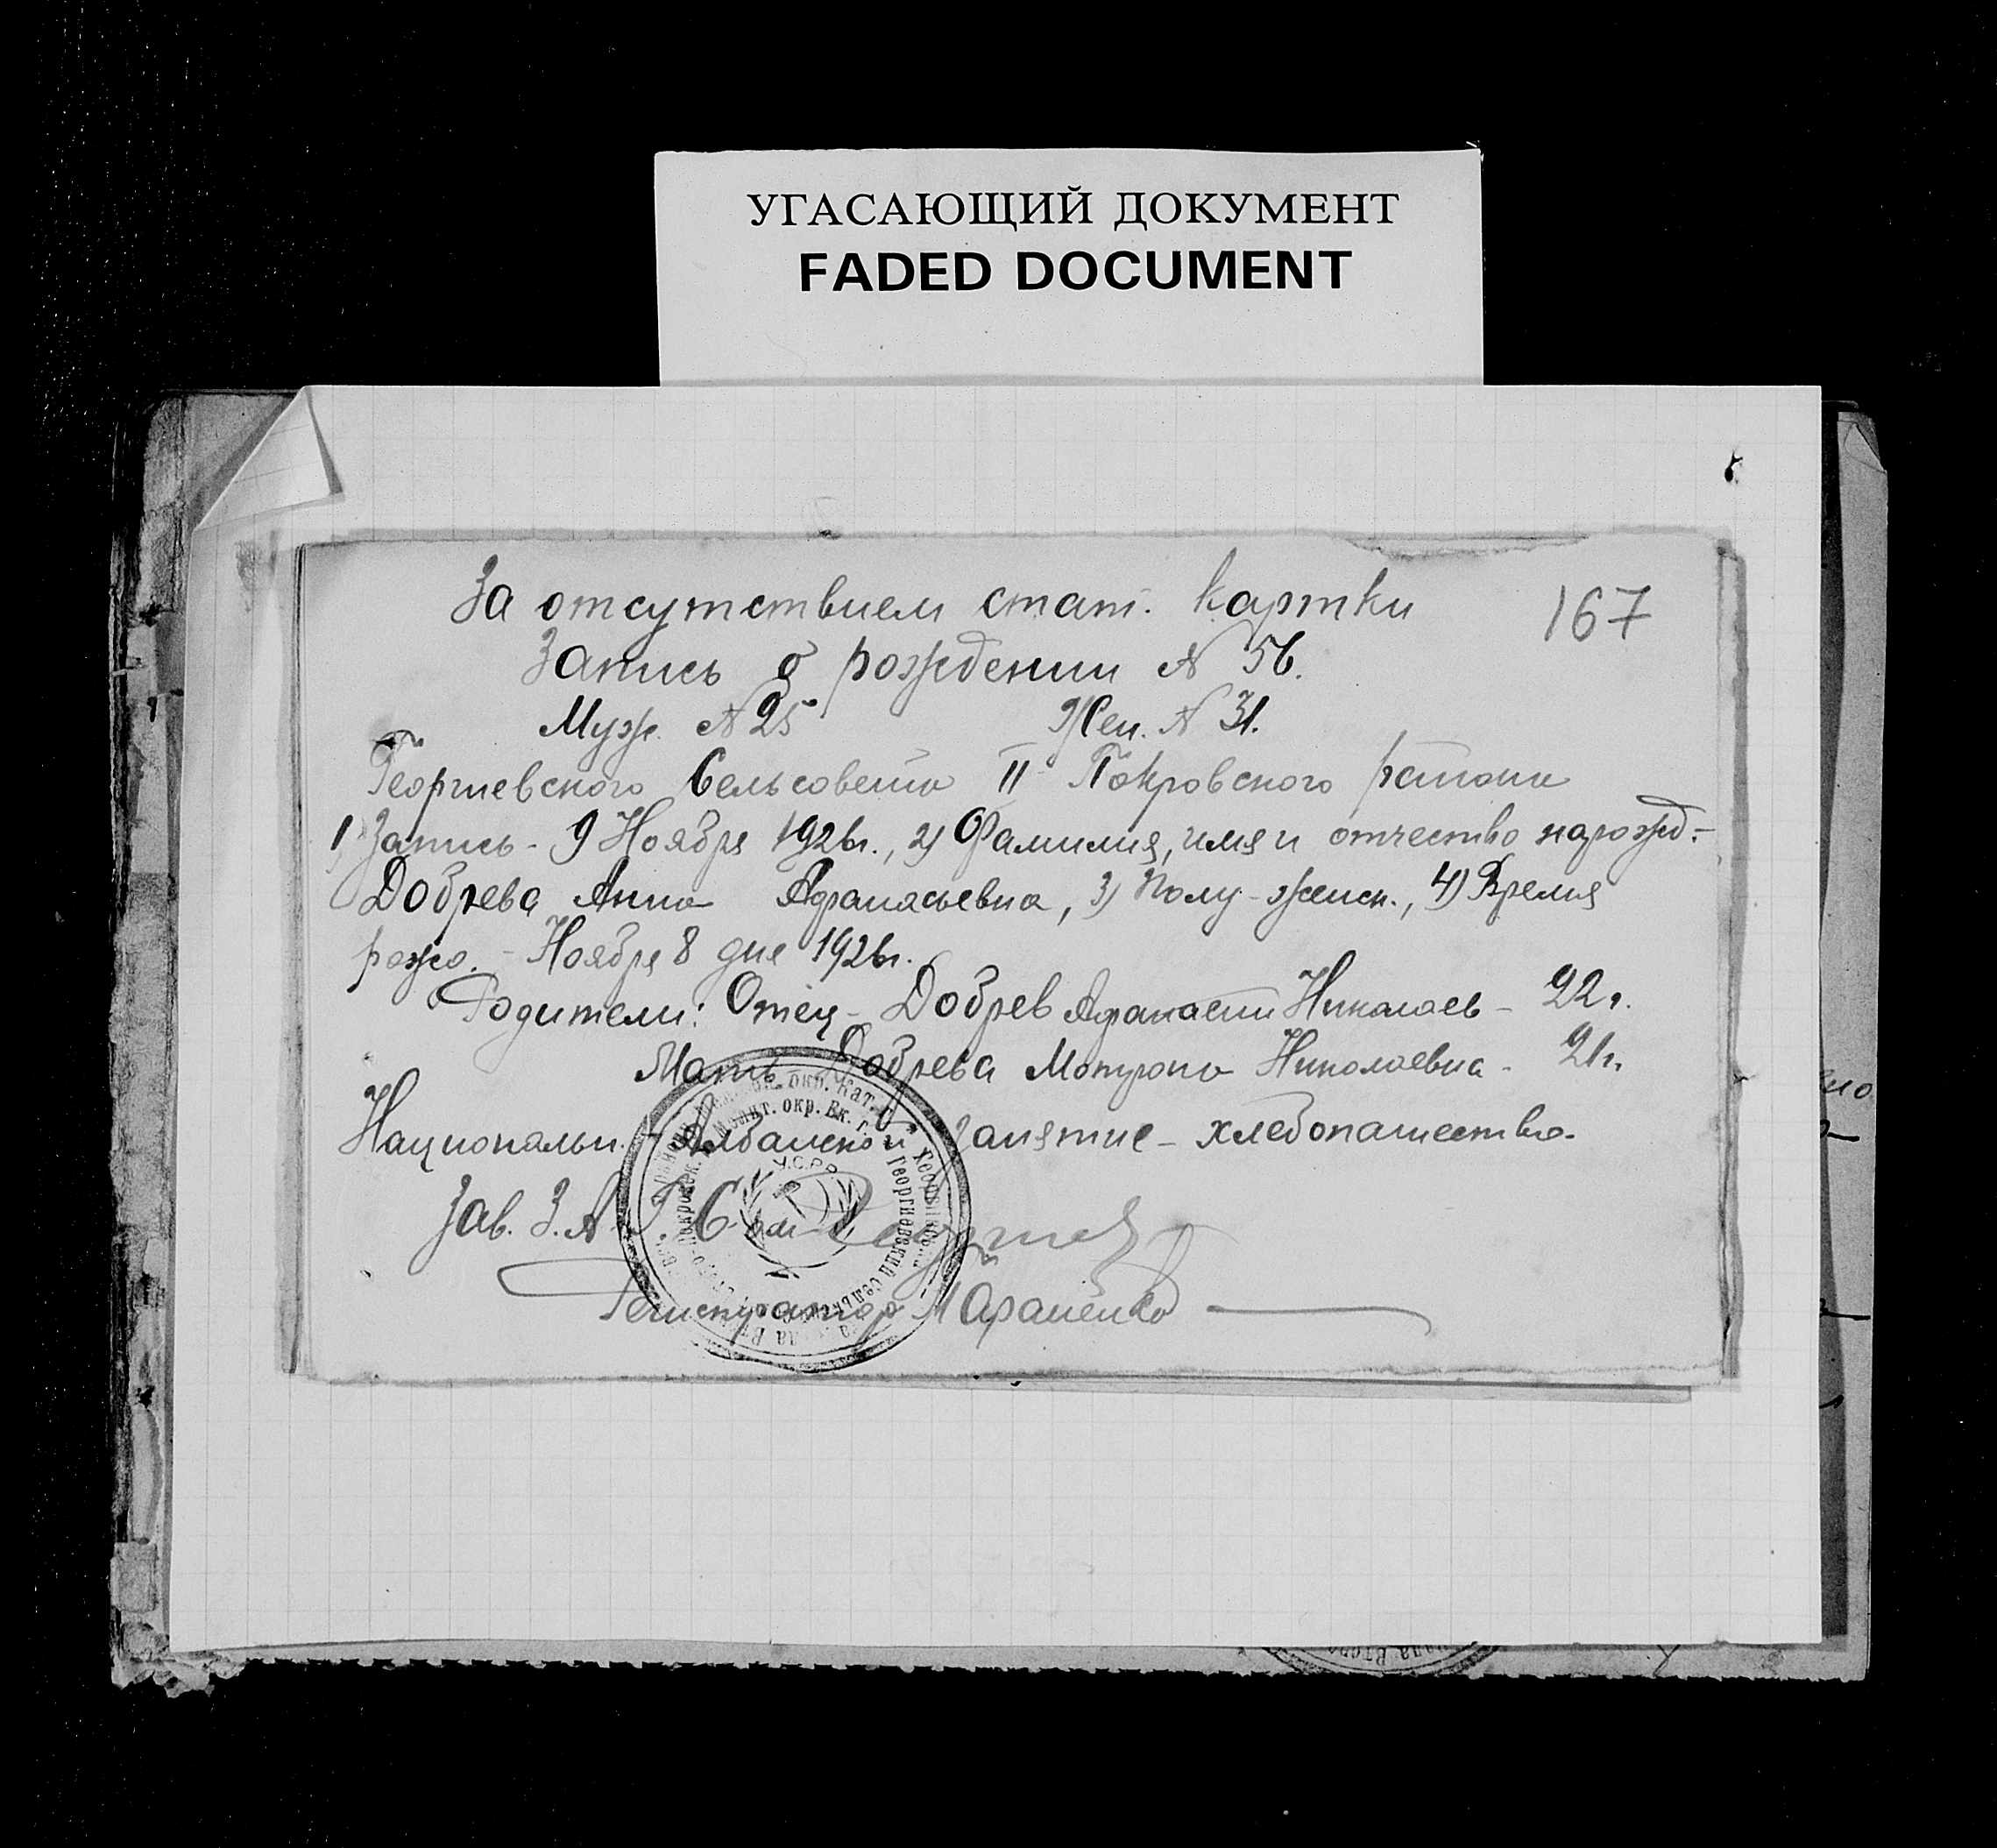 УГАСАЮЩИЙ ДОКУМЕНТ
FADED DOCUMENT
167
За отсутствием стат. картки
Запись о рождении № 56.
Муж. № 25 Жен. № 31.
Георгиевского Сельсовета II Покровского района
1) Запись - 9 Ноября 1926г., 2) Фамилия, имя и отчество нарожд-
Добрева Анна Афанасьевна, 3) Полу - женск., 4) Время
рожд. - Ноября 8 дня 1926г.
Родители: Отец - Добрев Афанасий Николаев - 22 г.
Мать Добрева Мотрона Николаевна - 21г.
Национальн. - Албанской занятие - хлебопашество.
Зав. З.А.Г.С.
Регистратор
У.С.Р.Р.
окр. Кат.
окр. Вк. г.
Георгиевский сельсовет